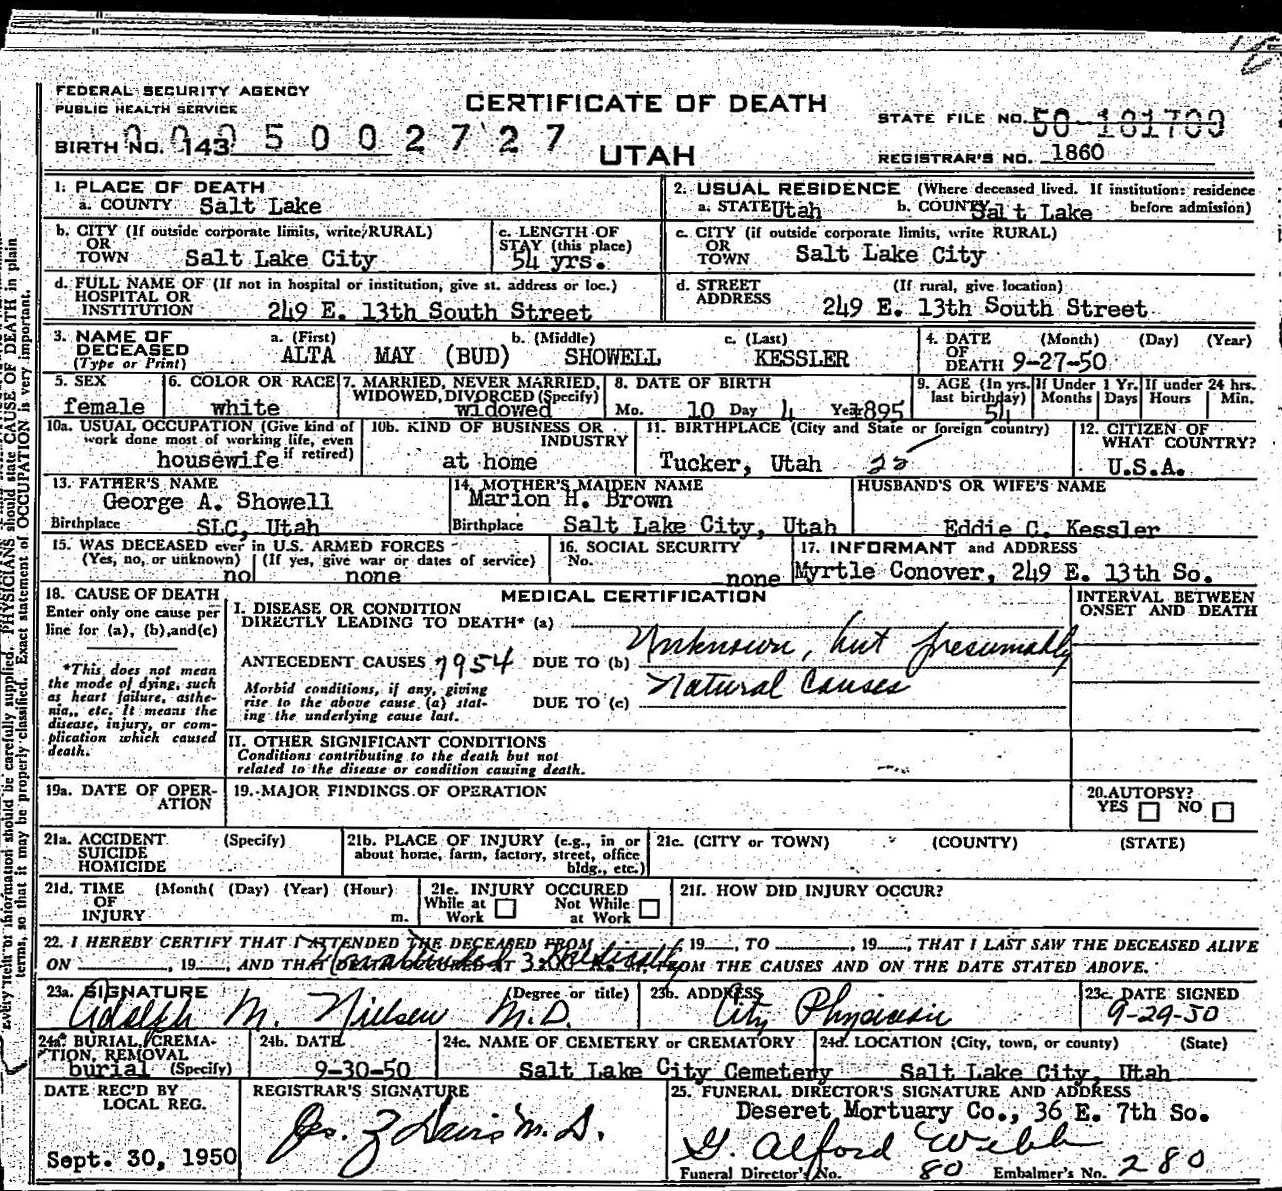 FEDERAL SECURITY AGENCY
PUBLIC HEALTH SERVICE
CERTIFICATE OF DEATH
UTAH
BIRTH NO. 143 0005002727
STATE FILE NO. 50-181709
REGISTRAR'S NO. 1860
1. PLACE OF DEATH
a. COUNTY Salt Lake
2. USUAL RESIDENCE (Where deceased lived. If institution: residence before admission)
a. STATE Utah b. COUNTY Salt Lake
b. CITY (If outside corporate limits, write RURAL)
OR
TOWN Salt Lake City
c. LENGTH OF
STAY (this place)
54 yrs.
c. CITY (if outside corporate limits, write RURAL)
OR
TOWN Salt Lake City
d. FULL NAME OF (If not in hospital or institution, give st. address or loc.)
HOSPITAL OR
INSTITUTION 249 E. 13th South Street
d. STREET (If rural, give location)
ADDRESS 249 E. 13th South Street
3. NAME OF DECEASED
(Type or Print)
a. (First) b. (Middle) c. (Last)
ALTA MAY (BUD) SHOWELL KESSLER
4. DATE (Month) (Day) (Year)
OF
DEATH 9-27-50
5. SEX
female
6. COLOR OR RACE
white
7. MARRIED, NEVER MARRIED,
WIDOWED, DIVORCED (Specify)
widowed
8. DATE OF BIRTH
Mo. 10 Day 4 Year 1895
9. AGE (In yrs. last birthday) 54
If Under 1 Yr. Months Days
If under 24 hrs. Hours Min.
10a. USUAL OCCUPATION (Give kind of
work done most of working life, even
if retired)
housewife
10b. KIND OF BUSINESS OR
INDUSTRY
at home
11. BIRTHPLACE (City and State or foreign country)
Tucker, Utah
12. CITIZEN OF
WHAT COUNTRY?
U.S.A.
13. FATHER'S NAME
George A. Showell
Birthplace SLC, Utah
14. MOTHER'S MAIDEN NAME
Marion H. Brown
Birthplace Salt Lake City, Utah
HUSBAND'S OR WIFE'S NAME
Eddie C. Kessler
15. WAS DECEASED ever in U.S. ARMED FORCES
(Yes, no, or unknown) (If yes, give war or dates of service)
no none
16. SOCIAL SECURITY
No.
none
17. INFORMANT and ADDRESS
Myrtle Conover, 249 E. 13th So.
18. CAUSE OF DEATH
Enter only one cause per
line for (a), (b), and (c)
*This does not mean
the mode of dying, such
as heart failure, asthe-
nia, etc. It means the
disease, injury, or com-
plication which caused
death.
MEDICAL CERTIFICATION
INTERVAL BETWEEN
ONSET AND DEATH
I. DISEASE OR CONDITION
DIRECTLY LEADING TO DEATH* (a)
Unknown, but presumably
ANTECEDENT CAUSES 7954 DUE TO (b)
Natural Causes
Morbid conditions, if any, giving
rise to the above cause (a) stat-
ing the underlying cause last.
DUE TO (c)
II. OTHER SIGNIFICANT CONDITIONS
Conditions contributing to the death but not
related to the disease or condition causing death.
19a. DATE OF OPER-
ATION
19. MAJOR FINDINGS OF OPERATION
20. AUTOPSY?
YES NO
21a. ACCIDENT (Specify)
SUICIDE
HOMICIDE
21b. PLACE OF INJURY (e.g., in or
about home, farm, factory, street, office
bldg., etc.)
21c. (CITY OR TOWN) (COUNTY) (STATE)
21d. TIME (Month) (Day) (Year) (Hour)
OF
INJURY m.
21e. INJURY OCCURED
While at Work Not While at Work
21f. HOW DID INJURY OCCUR?
22. I HEREBY CERTIFY THAT I ATTENDED THE DECEASED FROM , 19 , TO , 19 , THAT I LAST SAW THE DECEASED ALIVE
ON , 19 , AND THAT DEATH OCCURRED AT M. FROM THE CAUSES AND ON THE DATE STATED ABOVE.
Unattended Medically
23a. SIGNATURE (Degree or title)
Adolph M. Nielsen M.D.
23b. ADDRESS
City Physician
23c. DATE SIGNED
9-29-50
24a. BURIAL, CREMA-
TION, REMOVAL
burial (Specify)
24b. DATE
9-30-50
24c. NAME OF CEMETERY OR CREMATORY
Salt Lake City Cemetery
24d. LOCATION (City, town, or county) (State)
Salt Lake City, Utah
DATE REC'D BY
LOCAL REG.
Sept. 30, 1950
REGISTRAR'S SIGNATURE
Jos. Z Davis M.D.
25. FUNERAL DIRECTOR'S SIGNATURE AND ADDRESS
Deseret Mortuary Co., 36 E. 7th So.
G. Alford Webb
Funeral Director's No. 80 Embalmer's No. 280
information should be carefully supplied. PHYSICIANS should state CAUSE OF DEATH in plain
terms, so that it may be properly classified. Exact statement of OCCUPATION is very important.